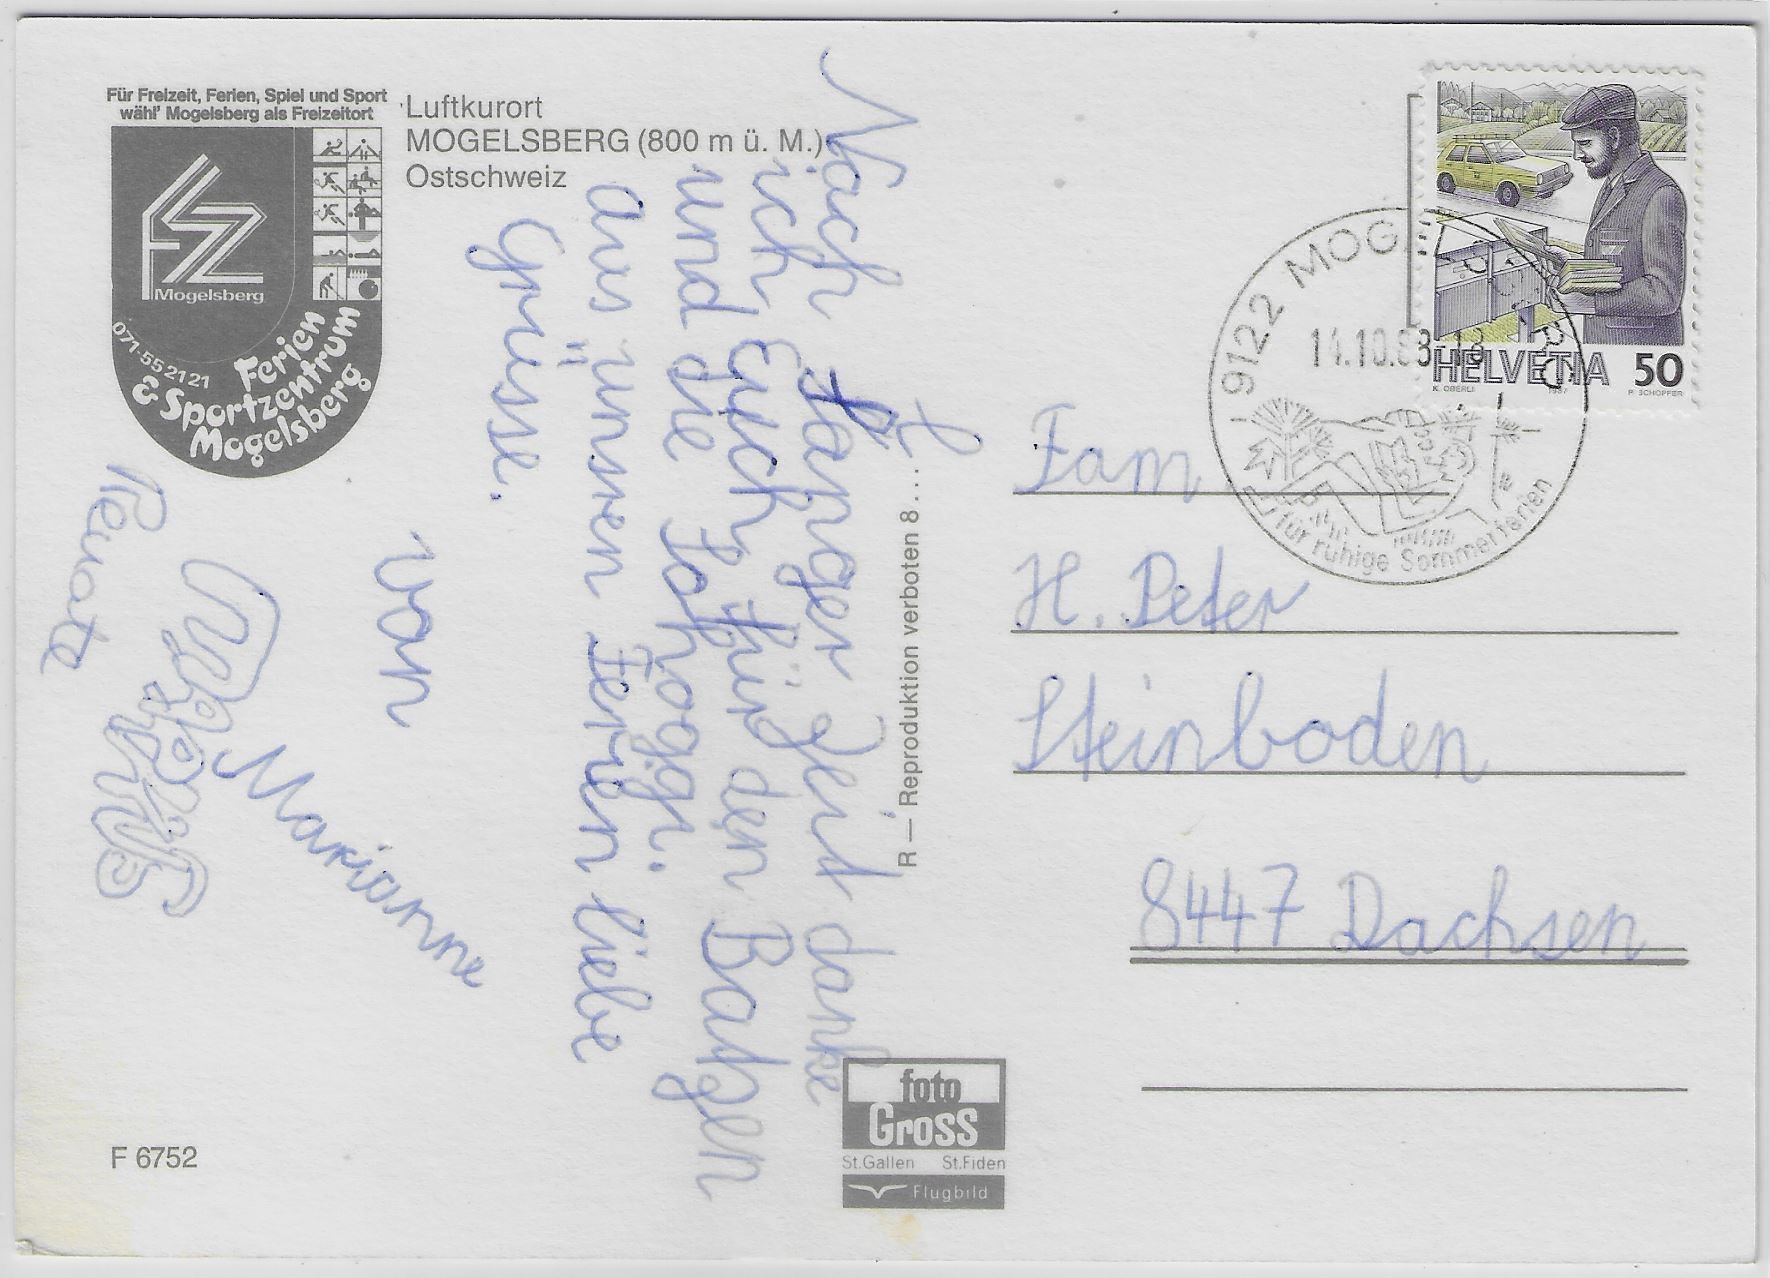 Für Freizeit, Ferien, Spiel und Sport
wähl' Mogelsberg als Freizeitort
Mogelsberg
071-55 21 21
Ferien
& Sportzentrum
Mogelsberg
Luftkurort
MOGELSBERG (800 m ü. M.)
Ostschweiz
Nach langer Zeit danke
ich Euch für den Batzen
und die Schoggi.
Aus unsren Ferien liebe
Grüsse.
von
Renate
Marianne
F 6752
R — Reproduktion verboten 8....
foto
Gross
St.Gallen St.Fiden
Flugbild
HELVETIA 50
K. OBERLI 1987 P. SCHOPFER
9122 MOG
14.10.88-18
für ruhige Sommerferien
Fam
H. Peter
Steinboden
8447 Dachsen